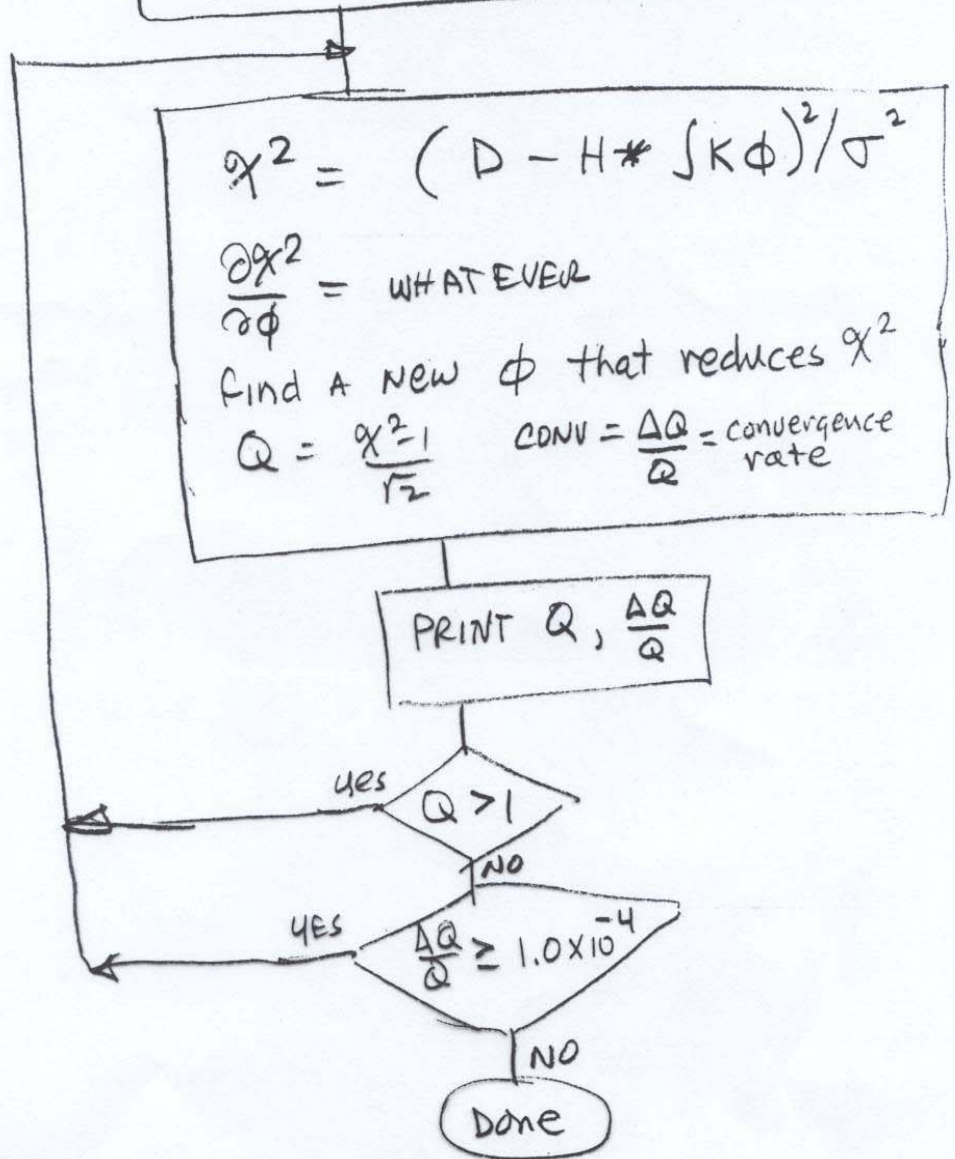 χ² = (D - H * ∫Kϕ)²/σ²
∂χ²/∂ϕ = WHATEVER
find A New ϕ that reduces χ²
Q = χ²-1/√2 CONV = ΔQ/Q = convergence rate
PRINT Q, ΔQ/Q
yes
Q > 1
NO
YES
ΔQ/Q ≥ 1.0x10⁻⁴
NO
Done